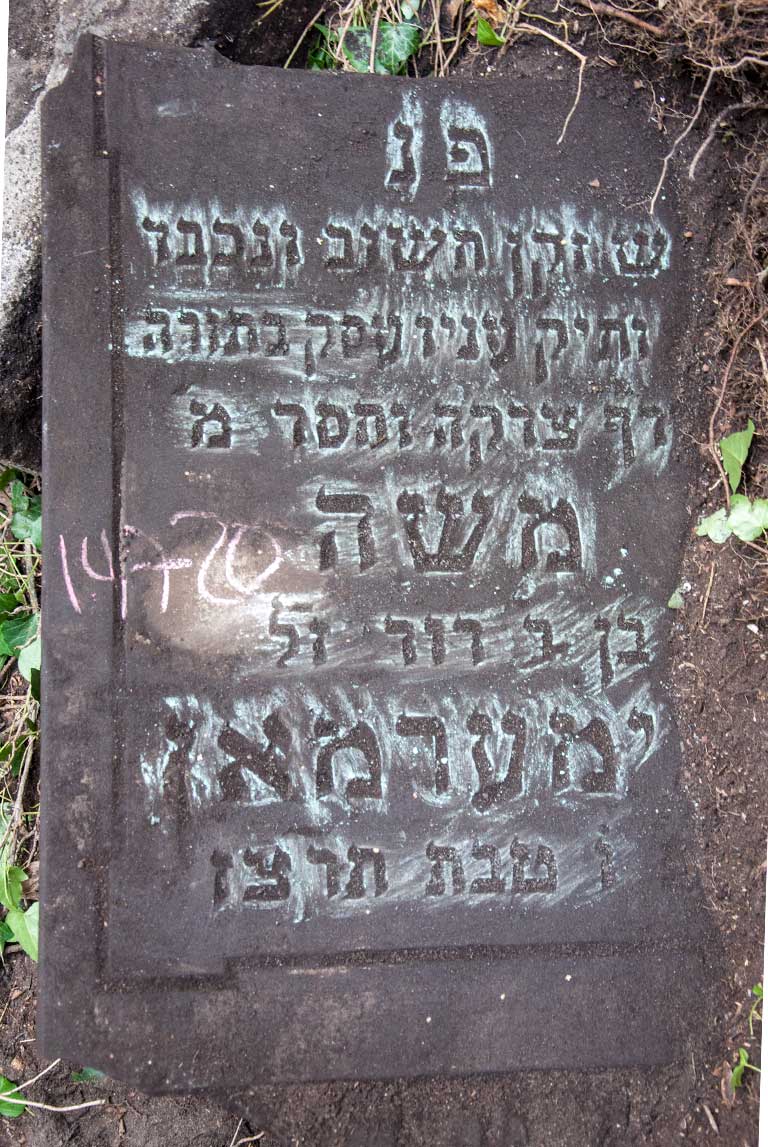 פ נ
ש זקן חשוב ונכבד
ותיק עניו עסק בתורה
רף צדקה וחסד מ
משה
בן ב דוד זל
ימערמאן
ו טבת תרצז
14720